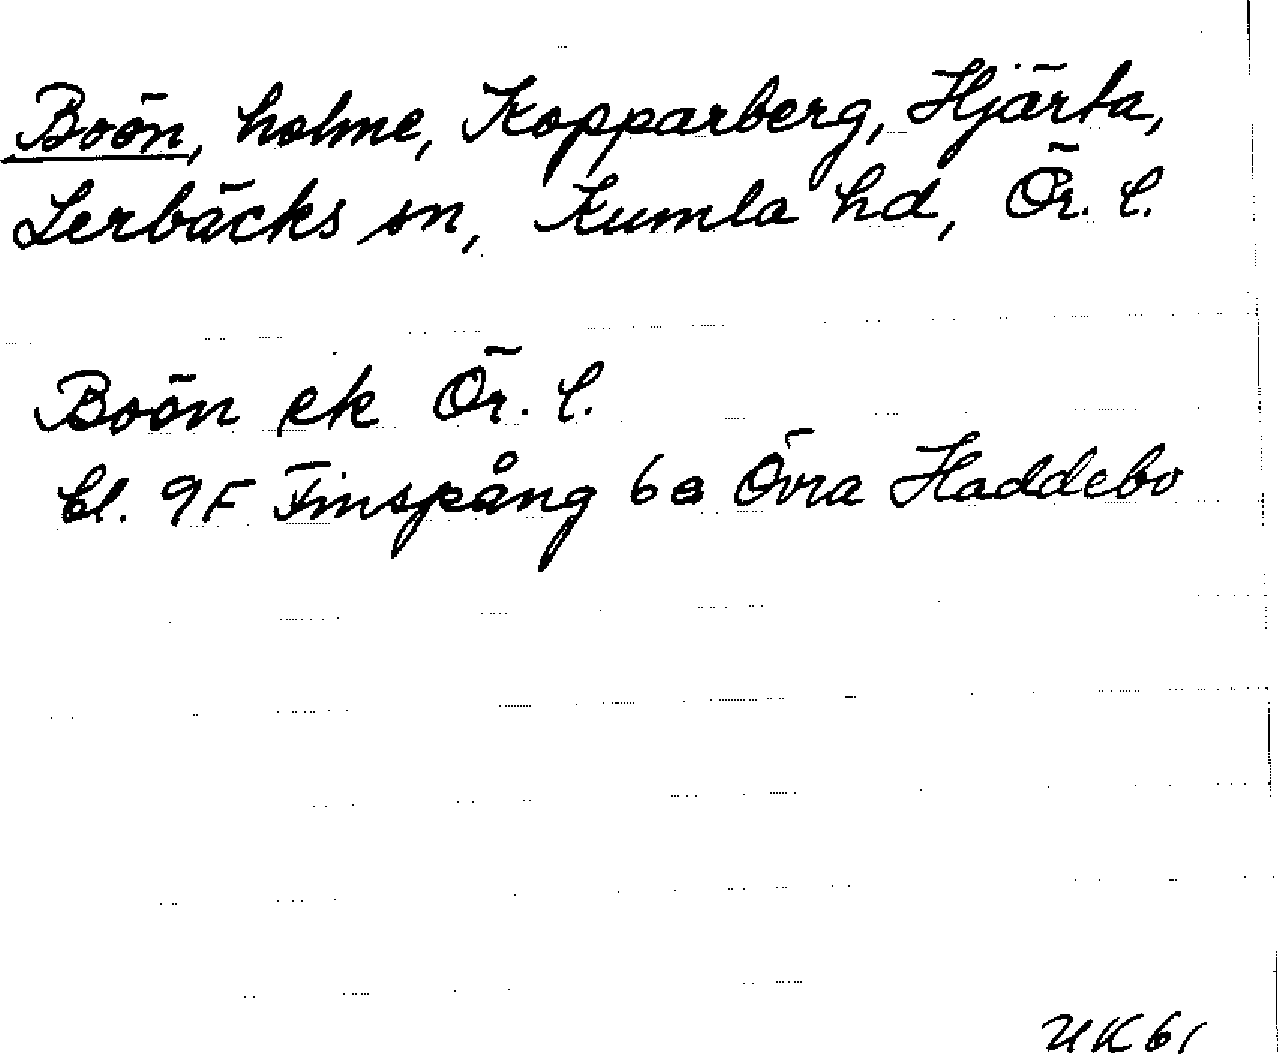 Boön, holme, Kopparberg, Hjärta,
Lerbäcks sn, Kumla hd, Ör. l.
Boön ek Ör. l.
bl. 9F Finspång 6a Övra Haddebo
UK 61